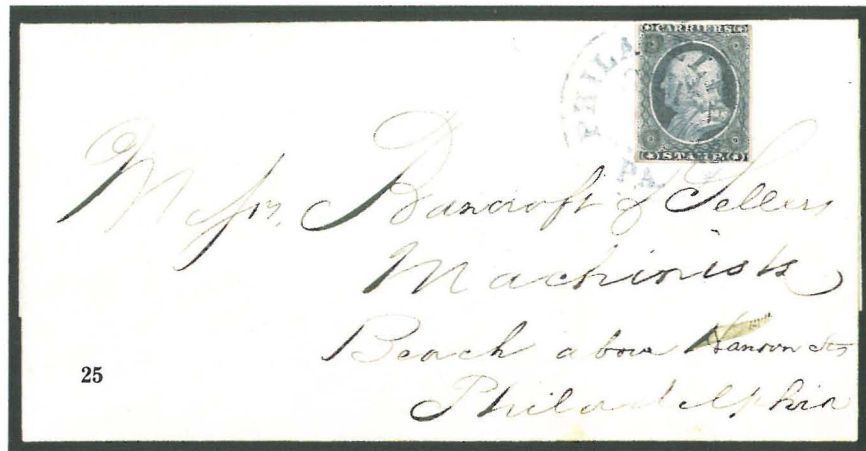 CARRIERS
STAMP
PHILADEL
PA
Messrs. Bancroft & Sellers
Machinists
Beach above Hanover Sts
Philadelphia
25